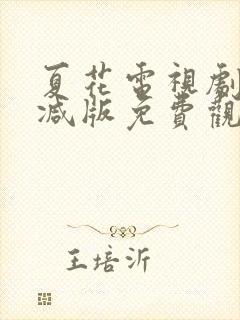 夏花電視劇
減版免費觀
王培沂